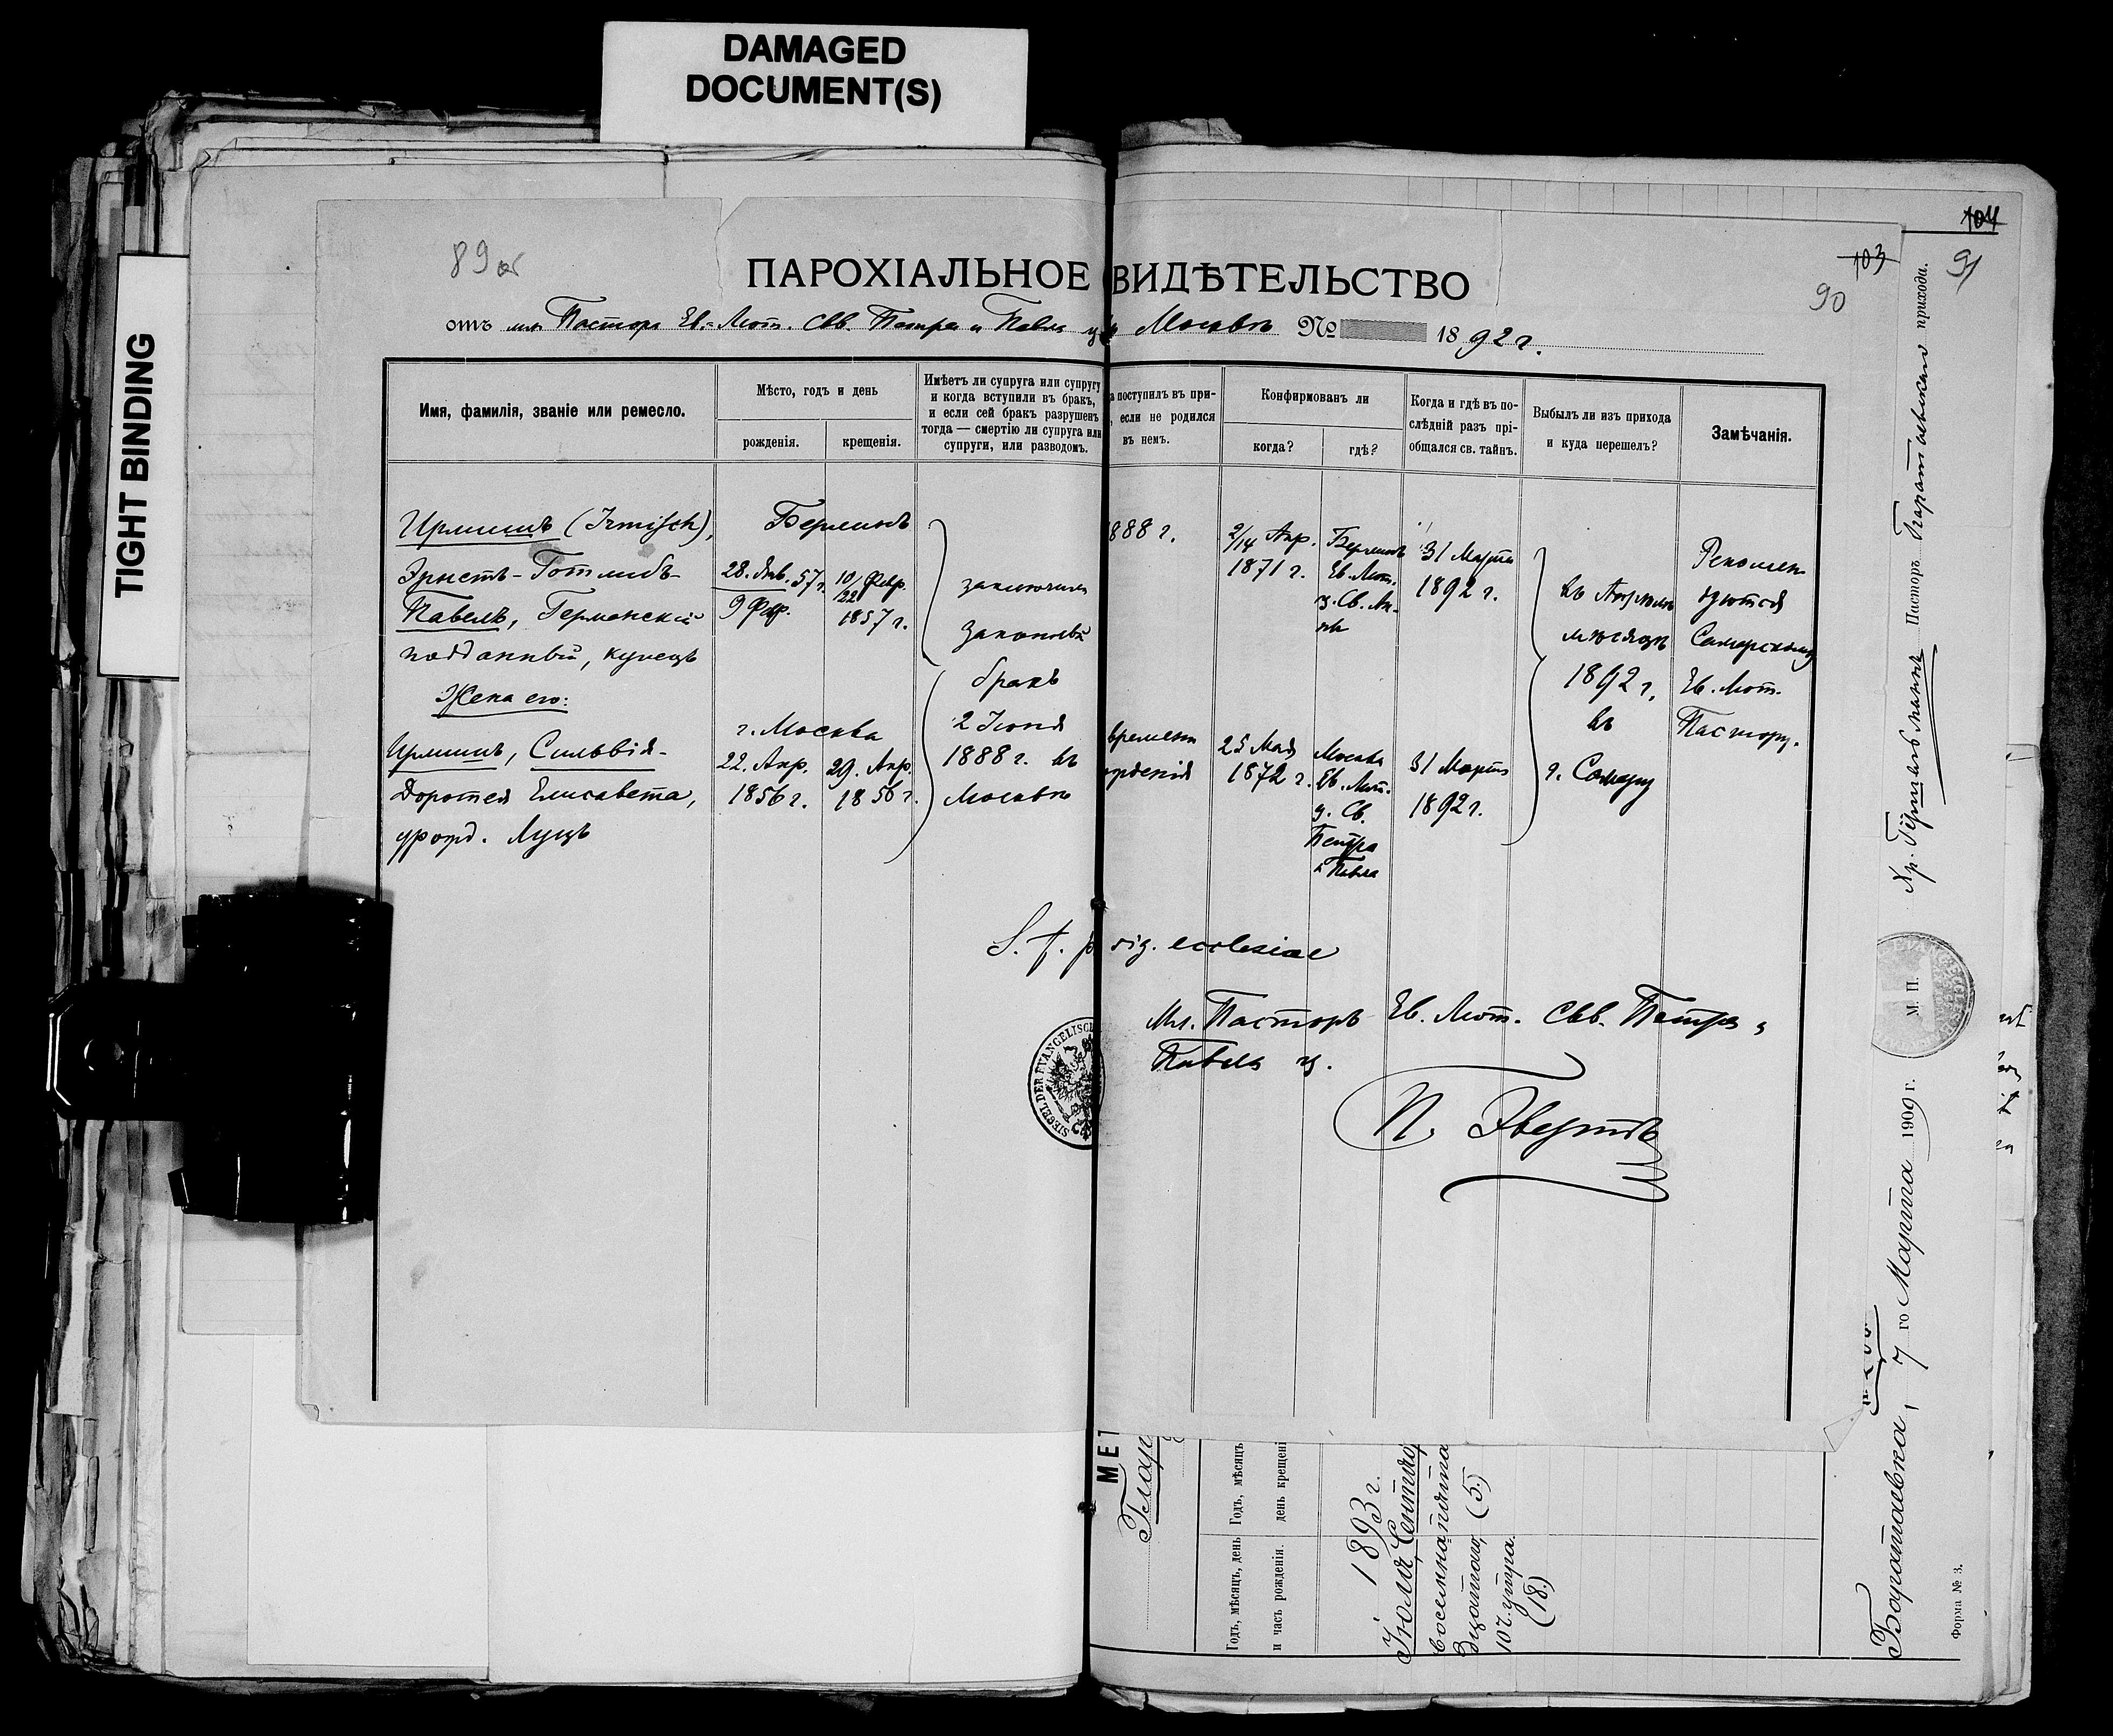 DAMAGED
DOCUMENT(S)
TIGHT BINDING
89 об
103
90
104
91
ПАРОХІАЛЬНОЕ ВИДѢТЕЛЬСТВО
отъ мл. Пастора Ев.-Лют. Свв. Петра и Павла ц. Москвѣ № 1892 г.
Имя, фамилія, званіе или ремесло.
Мѣсто, годъ и день
рожденія.
крещенія.
Имѣетъ ли супруга или супругу
и когда вступили въ бракъ,
и если сей бракъ разрушенъ
тогда — смертію ли супруга или
супруги, или разводомъ.
а поступилъ въ при-
, если не родился
въ немъ.
Конфирмованъ ли
когда?
гдѣ?
Когда и гдѣ въ по-
слѣдній разъ прі-
общался св. тайнъ.
Выбылъ ли изъ прихода
и куда перешелъ?
Замѣчанія.
Ирмишъ (Irmisch),
Эрнстъ-Готлибъ-
Павелъ, Германскій
подданный, купецъ
Жена его:
Ирмишъ, Сильвія-
Доротея Елисавета,
урожд. Луцъ
Берлинъ
28. Янв. 57 г.
9 Фев.
10/22 Февр.
1857 г.
г. Москва
22. Апр.
1856 г.
29. Апр.
1856 г.
заключили
законный
бракъ
2 Іюня
1888 г. въ
Москвѣ
888 г.
времени
рожденія
2/14 Апр.
1871 г.
Берлинъ
Ев. Лют.
ц. Св. Ан-
ны
25 Мая
1872 г.
Москва
Ев. Лют.
ц. Св.
Петра
и Павла
31 Марта
1892 г.
31 Марта
1892 г.
въ Апрѣлѣ
мѣсяцѣ
1892 г.
въ
г. Самару
Рекомен-
дуются
Самарскому
Ев. Лют.
Пастору.
S. f. p. sig. ecclesiae
SIEGEL DER EVANGELISCH
Мл. Пасторъ Ев. Лют. Свв. Петра и
Павла ц.
П. Эвертъ
МЕТ
Годъ, мѣсяцъ, день
и часъ рожденія.
Годъ, мѣсяцъ
день крещені
1893 г.
Іюля,
Сентяб
восемна
пятна
дцатаго,
(5.)
10 ч. утра.
(18.)
Боратаевка, 7 го Марта 1909 г.
М. П.
EVANGELISCH
Пасторъ
прихода.
Форма № 3.